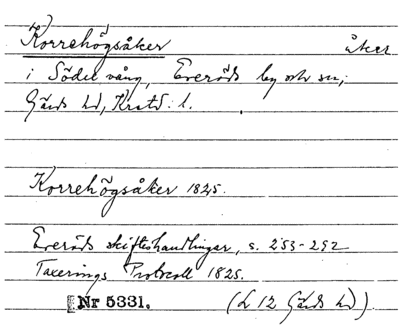 Korrehögsåker åker
i Södre vång, Everöds by och sn,
Gärds hd, Kristd. l.
Korrehögsåker 1825.
Everöds skifteshandlingar, s. 253-292
Taxerings Protocoll 1825.
Nr 5331. (L 12 Gärds hd).